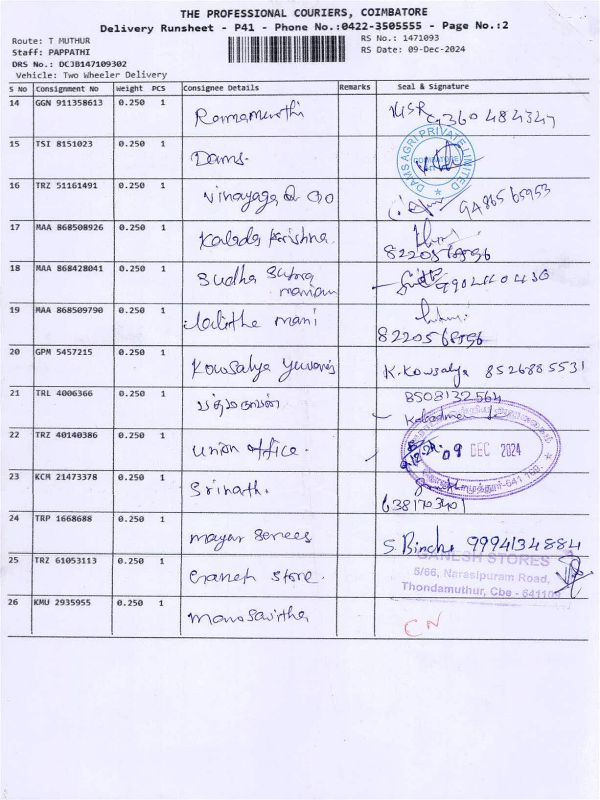 THE PROFESSIONAL COURIERS, COIMBATORE
Delivery Runsheet - P41 - Phone No.:0422-3505555 - Page No.:2
Route: T MUTHUR
Staff: PAPPATHI
DRS No.: DCJB147109302
Vehicle: Two Wheeler Delivery
RS No.: 1471093
RS Date: 09-Dec-2024
S No Consignment No Weight PCS Consignee Details Remarks Seal & Signature
14 GGN 911358613 0.250 1 Ramamurthi
15 TSI 8151023 0.250 1 Dams. DAMS AGRI PRIVATE LIMITED COIMBATORE
16 TRZ 51161491 0.250 1 Vinayaga & Co
17 MAA 868508926 0.250 1 8220568896
18 MAA 868428041 0.250 1 Sudha
19 MAA 868509790 0.250 1 Lalitha mani
20 GPM 5457215 0.250 1 Kowsalya K. Kowsalya 8526885531
21 TRL 4006366 0.250 1 8508132564
22 TRZ 40140386 0.250 1 Union office. 09 DEC 2024
23 KCM 21473378 0.250 1 Srinath.
24 TRP 1668688 0.250 1 9994134884
25 TRZ 61053113 0.250 1 Store. GANESH STORES
5/66, Narasipuram Road,
Thondamuthur, Cbe - 641109
26 KMU 2935955 0.250 1 CN